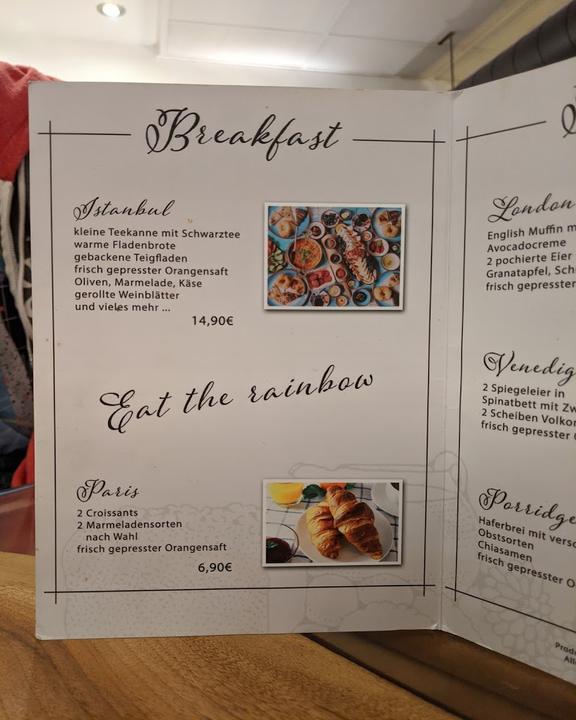 Breakfast
Istanbul
kleine Teekanne mit Schwarztee
warme Fladenbrote
gebackene Teigfladen
frisch gepresster Orangensaft
Oliven, Marmelade, Käse
gerollte Weinblätter
und vieles mehr ...
14,90€
Eat the rainbow
Paris
2 Croissants
2 Marmeladensorten
nach Wahl
frisch gepresster Orangensaft
6,90€
London
English Muffin
Avocadocreme
2 pochierte Eier
Granatapfel,
frisch gepresster
Venedig
2 Spiegeleier in
Spinatbett mit
2 Scheiben
frisch gepresster
Porridge
Haferbrei mit
Obstsorten
Chiasamen
frisch gepresster